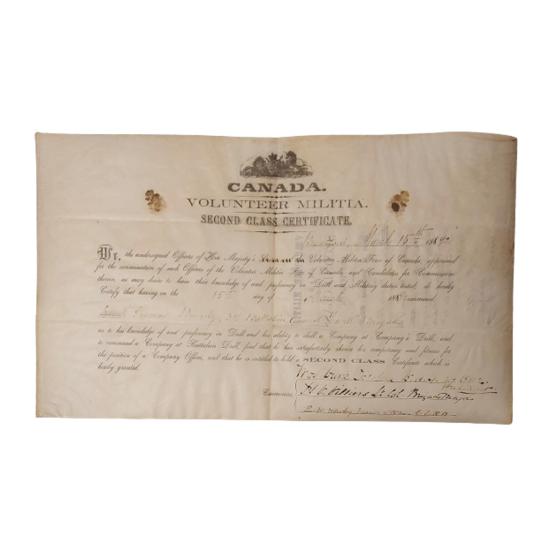 CANADA.
VOLUNTEER MILITIA.
SECOND CLASS CERTIFICATE.
March 15th 188
We, the undersigned Officers of Her Majesty's the Volunteer Militia Force of Canada, appointed
for the examination of such Officers of the Volunteer Militia Force of Canada, and Candidates for Commissions
therein, as may desire to have their knowledge of and proficiency in Drill and Military duties tested, do hereby
Certify that having on the 15th day of March 188 examined
as to his knowledge of and proficiency in Drill and his ability to drill a Company at Company's Drill, and
to command a Company at Battalion Drill, find that he has satisfactorily shown his competency and fitness for
the position of a Company Officer, and that he is entitled to hold a SECOND CLASS Certificate which is
hereby granted.
Lt Col Brigade Major
Examiners